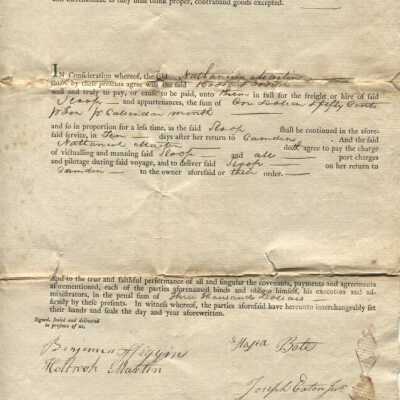 as they may think proper, contraband goods excepted.
IN Consideration whereof, the said Nathaniel Martin
by these presents agree with the said
well and truly to pay, or cause to be paid, unto them in full for the freight or hire of said
Sloop and appurtenances, the sum of One Dollar & fifty Cents
pr Ton pr Calendar month
and so in proportion for a less time, as the said Sloop shall be continued in the afore-
said service, in Ten days after her return to Camden And the said
Nathaniel Martin doth agree to pay the charge
of victualling and manning said Sloop and all port charges
and pilotage during said voyage, and to deliver said Sloop on her return to
Camden to the owner aforesaid or their order.
And to the true and faithful performance of all and singular the covenants, payments and agreements
aforementioned, each of the parties aforenamed binds and obliges himself, his executors and ad-
ministrators, in the penal sum of Three thousand Dollars
firmly by these presents. In witness whereof, the parties aforesaid have hereunto interchangeably set
their hands and seals the day and year aforewritten.
Signed, sealed and delivered
in presence of us.
Benjamin Higgins
Bates
Martin
Joseph Eaton Jr